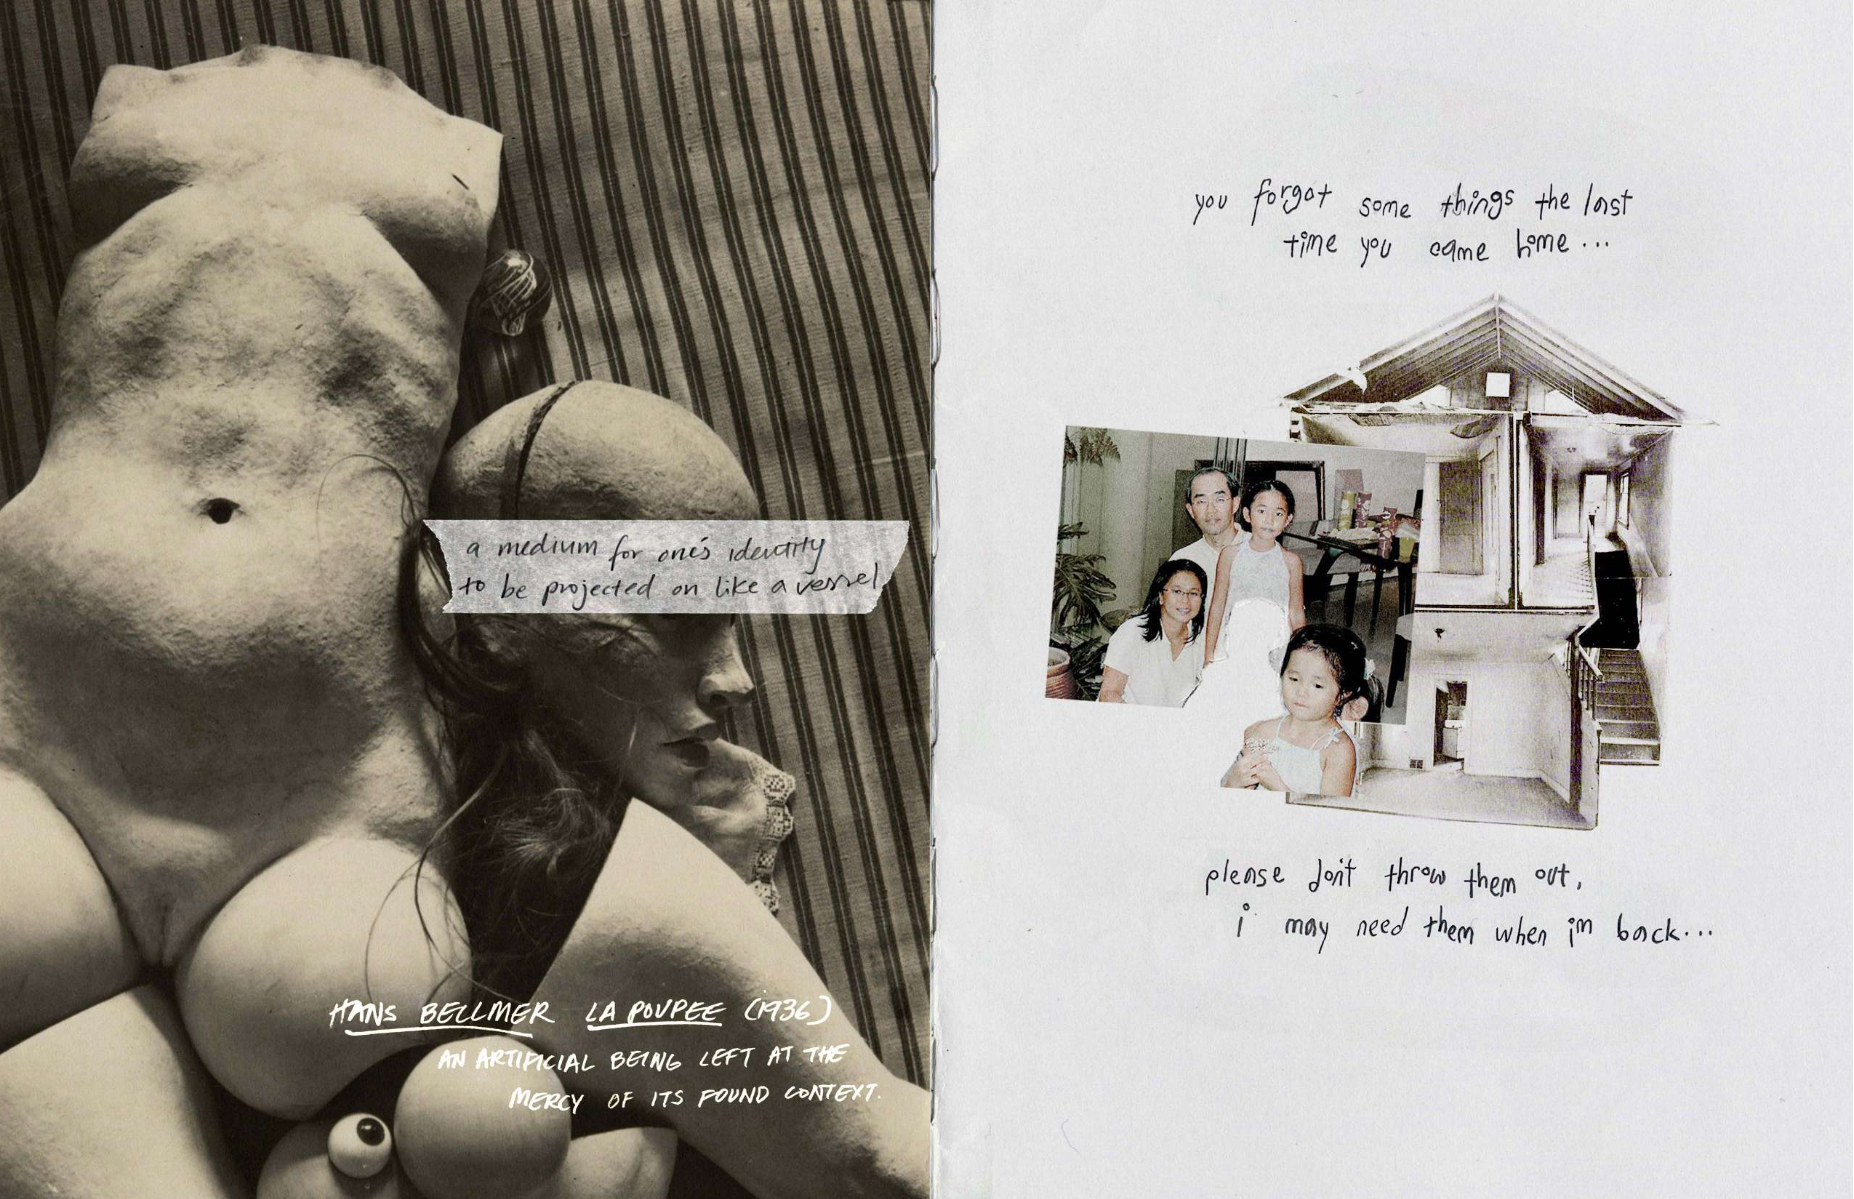 a medium for one's identity
to be projected on like a vessel
HANS BELLMER LA POUPEE (1936)
AN ARTIFICIAL BEING LEFT AT THE
MERCY OF ITS FOUND CONTEXT.
you forgot some things the last
time you came home...
please don't throw them out,
i may need them when i'm back...